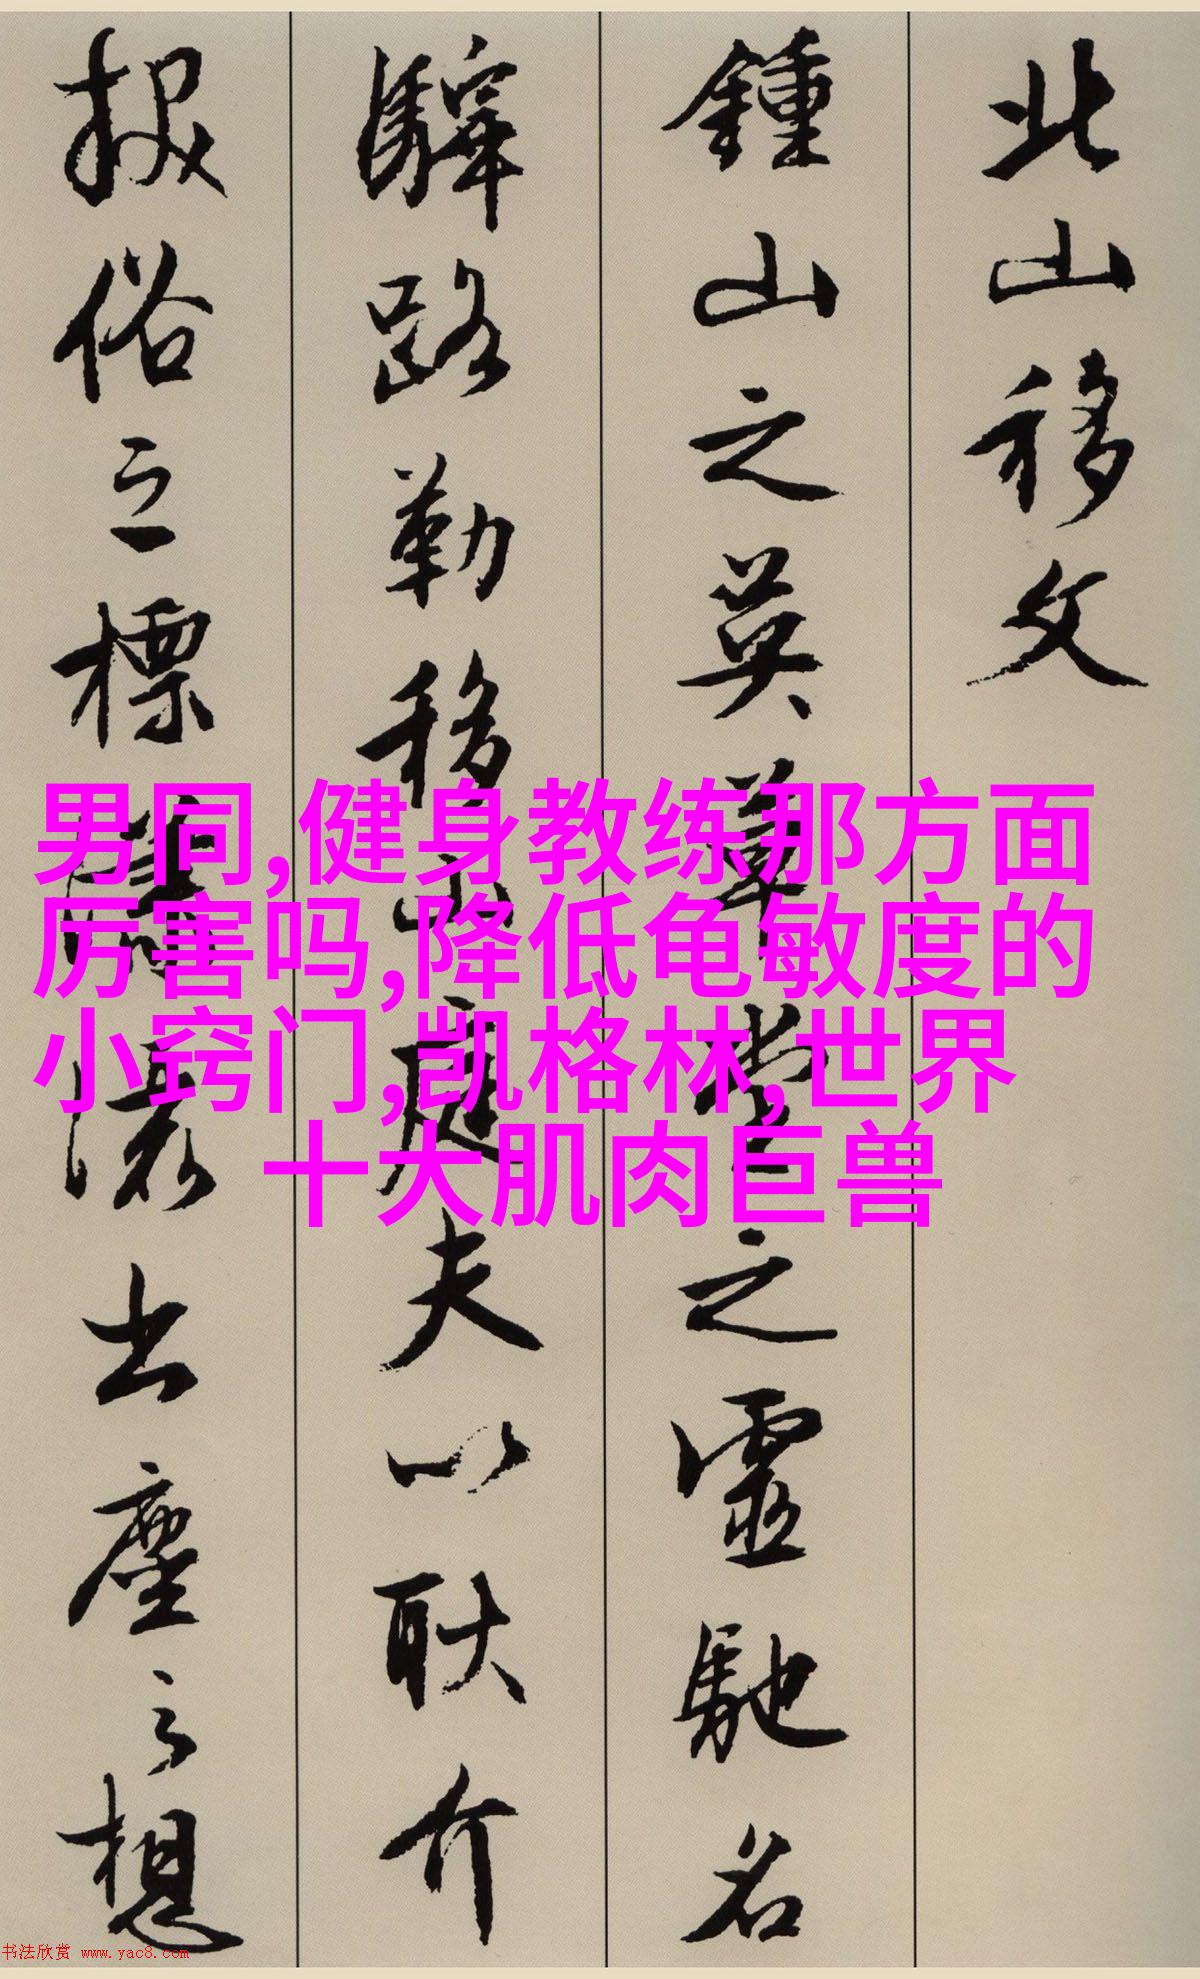 北山移文
鍾山之英草堂之靈馳名
驛路勒移山庭夫以耿介
拔俗之標瀟灑出塵之想
男同,健身教练那方面
厉害吗,降低龟敏度的
小窍门,凯格林,世界
十大肌肉巨兽
书法欣赏 www.yac8.com